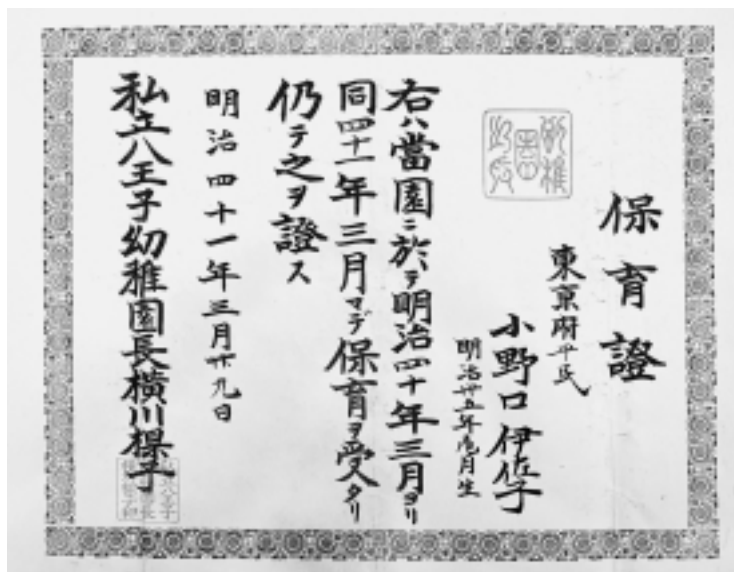 保育證
東京府平民
小野口伊佐子
明治廿五年壱月生
右ハ當園ニ於テ明治四十年三月ヨリ
同四十一年三月マデ保育ヲ受タリ
仍テ之ヲ證ス
明治四十一年三月廿九日
私立八王子幼稚園長横川楳子